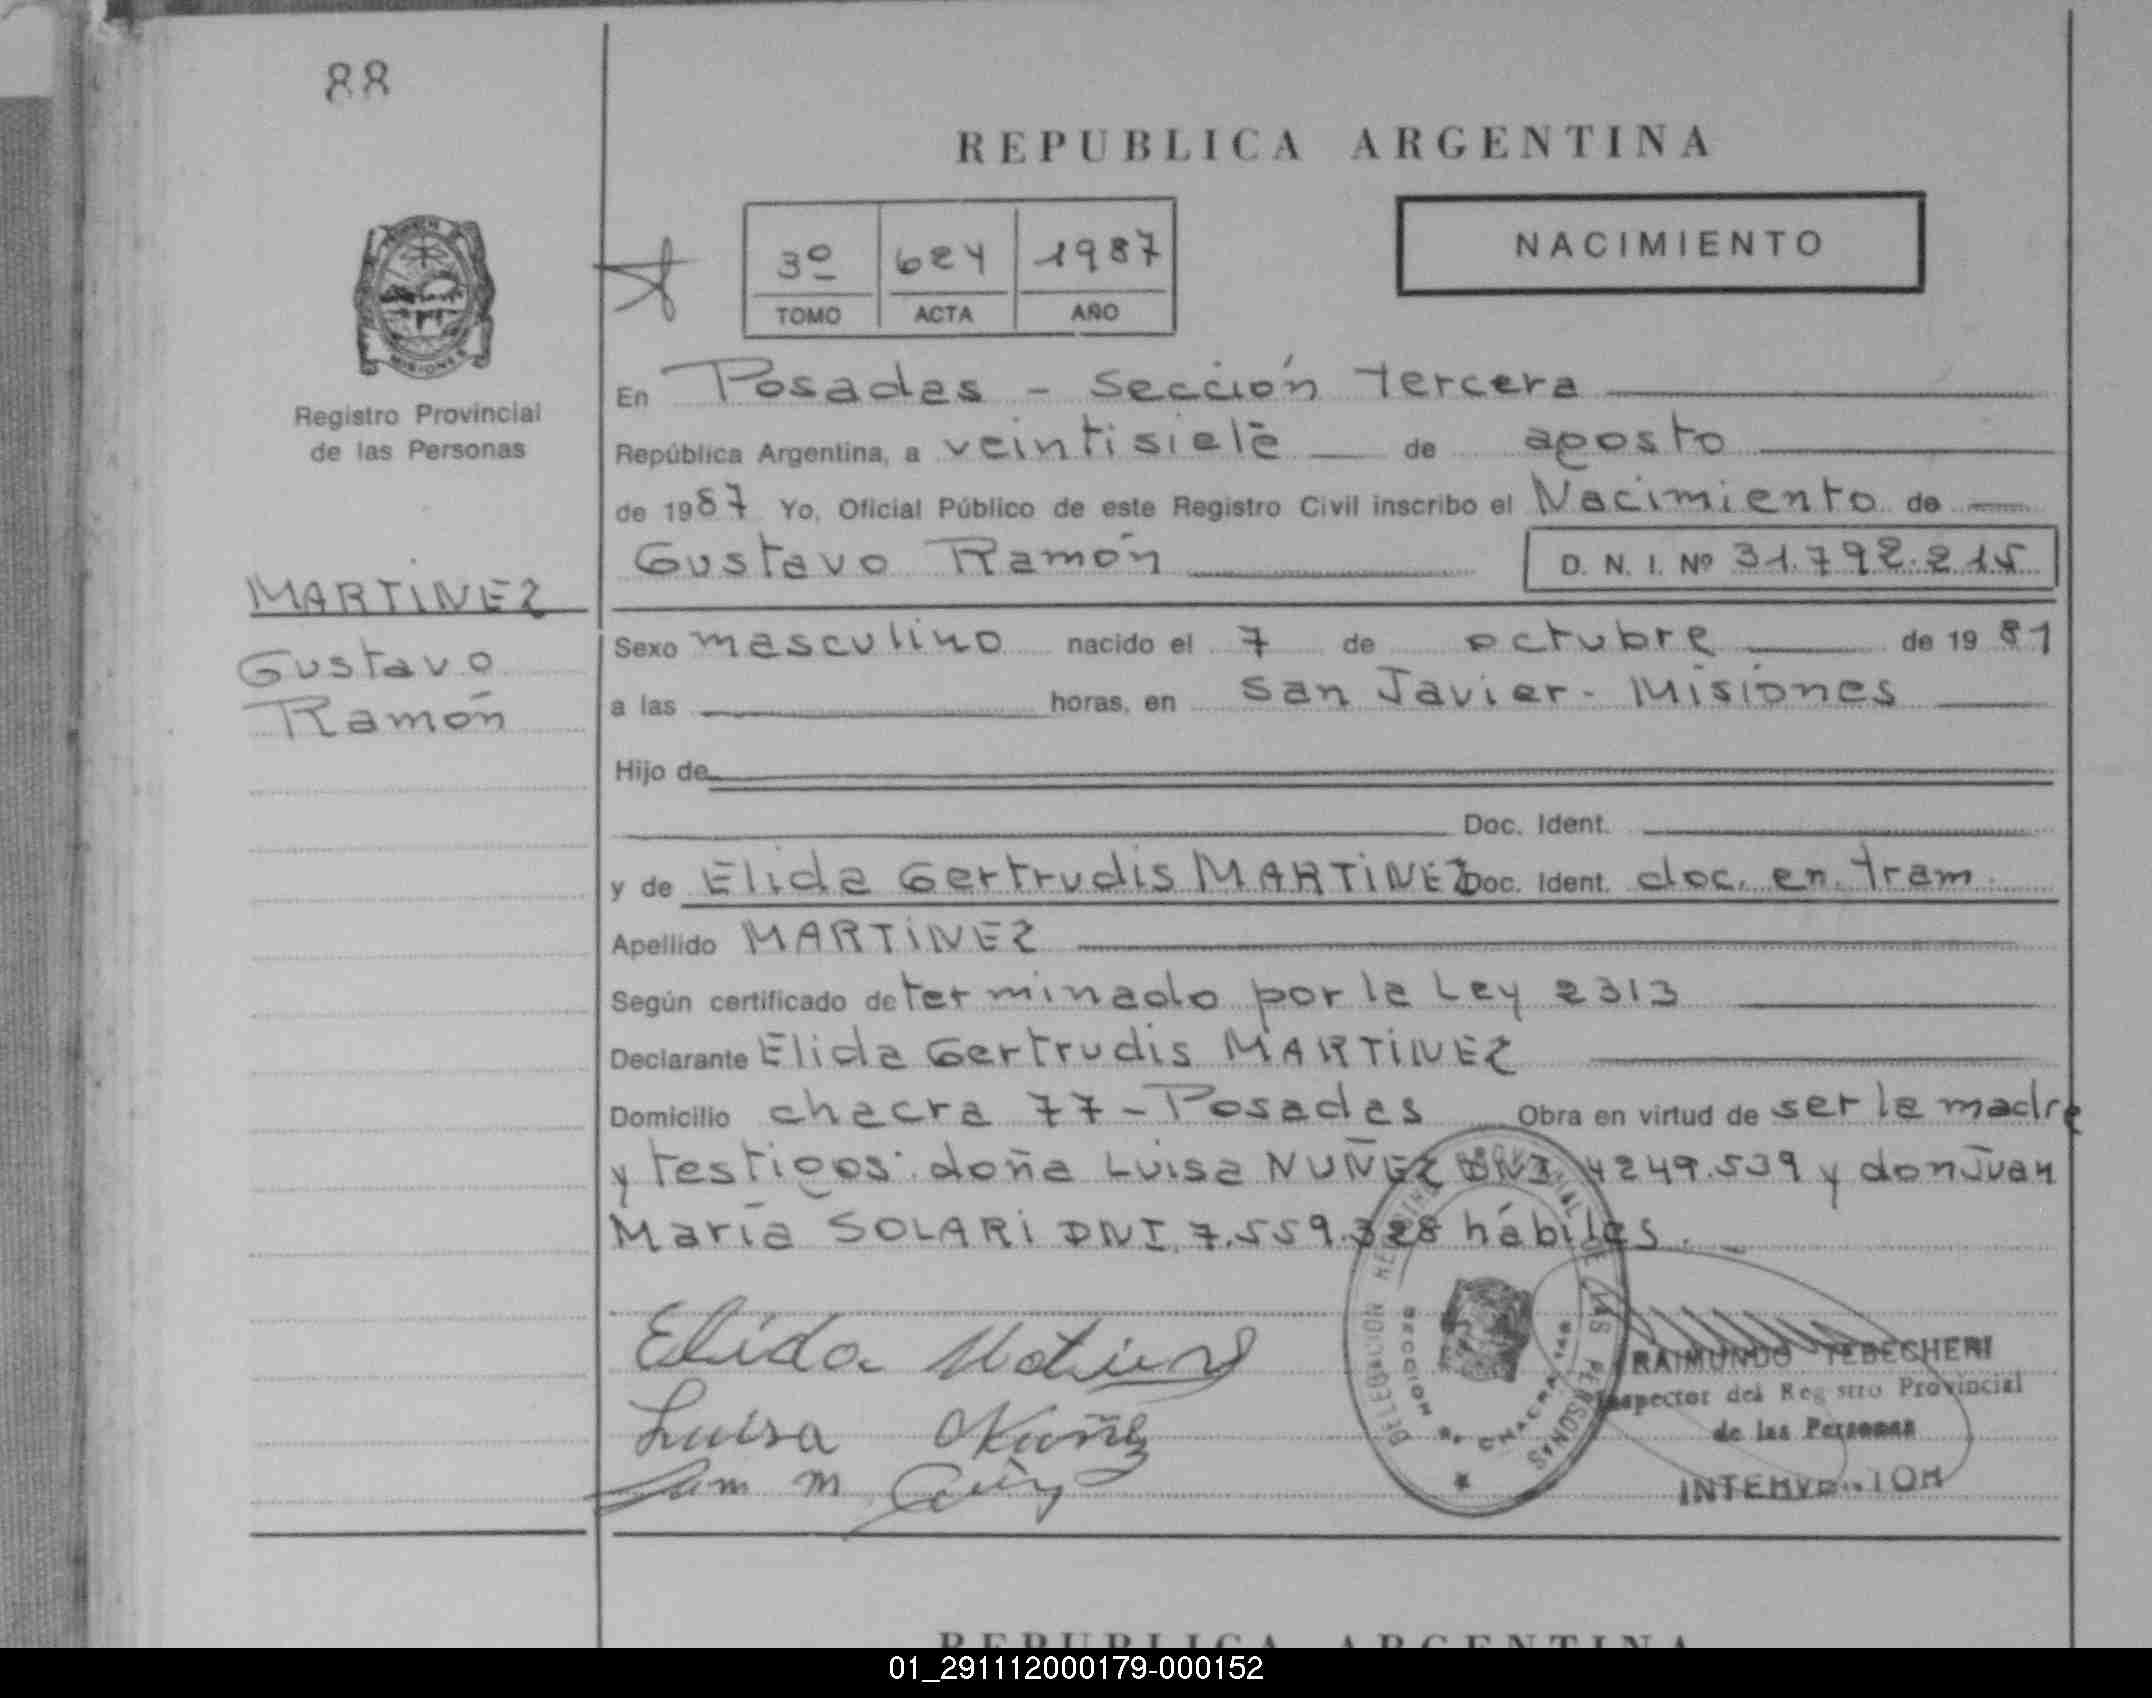 88
REPUBLICA ARGENTINA
3º 624 1987
TOMO ACTA AÑO
NACIMIENTO
MISIONES
Registro Provincial
de las Personas
En Posadas - Sección Tercera
República Argentina, a veintisiete de agosto
de 1987 Yo, Oficial Público de este Registro Civil inscribo el Nacimiento de
Gustavo Ramón
D. N. I. Nº 31.792.215
MARTINEZ
Gustavo
Ramón
Sexo masculino nacido el 7 de octubre de 1981
a las horas, en San Javier - Misiones
Hijo de
Doc. Ident.
y de Elida Gertrudis MARTINEZ Doc. Ident. doc. en tram.
Apellido MARTINEZ
Según certificado determinado por la Ley 2313
Declarante Elida Gertrudis MARTINEZ
Domicilio chacra 77 - Posadas Obra en virtud de ser la madre
y testigos: doña Luisa NUÑEZ DNI 4249.539 y don Juan
María SOLARI DNI. 7.559.328 hábiles.
Elida
Luisa Nuñez
DELEGACION REGISTRO PROVINCIAL DE LAS PERSONAS
CHACRA 148
RAIMUNDO TEBECHERI
Inspector del Registro Provincial
de las Personas
INTERVENTOR
REPUBLICA ARGENTINA
01_291112000179-000152